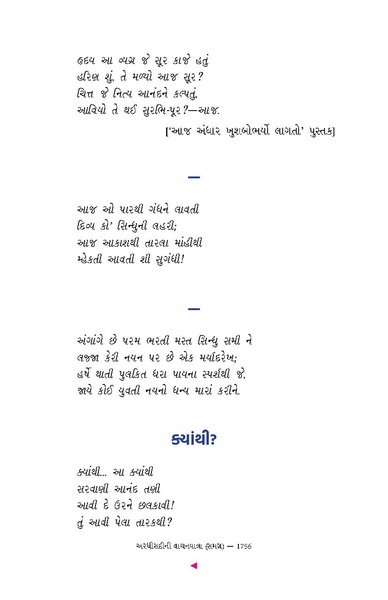 હૃદય આ વ્યગ્ર જે સૂર કાજે હતું
હરિણ શું, તે મળ્યો આજ સૂર?
ચિત્ત જે નિત્ય આનંદને કલ્પતું,
આવિયો તે થઈ સુરભિ-પૂર?—આજ.
[‘આજ અંધાર ખુશબોભર્યો લાગતો.’ પુસ્તક]
—
આજ ઓ પારથી ગંધને લાવતી
દિવ્ય કો’ સિન્ધુની લહરી;
આજ આકાશથી તારલા માંહીથી
મ્હેકતી આવતી શી સુગંધી!
—
અંગાંગે છે પરમ ભરતી મસ્ત સિન્ધુ સમી ને
લજ્જા કેરી નયન પર છે એક મર્યાદરેખ;
હર્ષે થાતી પુલકિત ધરા પાયના સ્પર્શથી જે,
જાયે કોઈ યુવતી નયનો ધન્ય મારાં કરીને.
ક્યાંથી?
ક્યાંથી... આ ક્યાંથી
સરવાણી આનંદ તણી
આવી દે ઉરને છલકાવી!
તું આવી પેલા તારકથી?
અરધીસદીની વાચનયાત્રા (સમગ્ર) — 1756